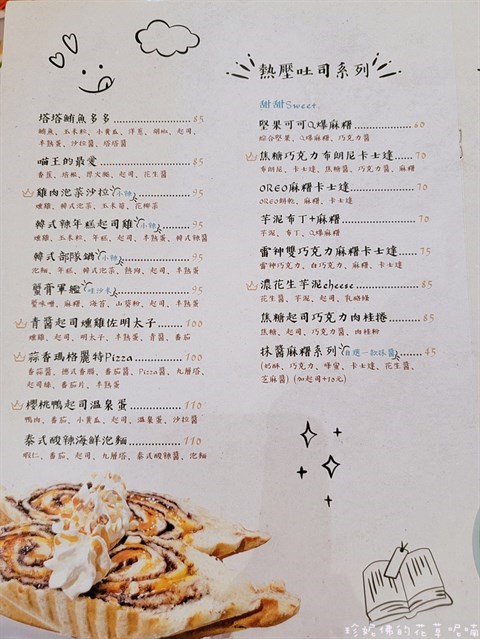 熱壓吐司系列
塔塔鮪魚多多 85
鮪魚、玉米粒、小黃瓜、洋蔥、胡椒、起司、
半熟蛋、沙拉醬、塔塔醬
喵王的最愛 85
香蕉、培根、厚火腿、起司、花生醬
雞肉泡菜沙拉 小辣 95
燻雞、韓式泡菜、玉米筍、花椰菜
韓式辣年糕起司雞 小辣 95
燻雞、玉米粒、年糕、起司、半熟蛋、韓式辣醬
韓式部隊鍋 小辣 95
泡麵、年糕、韓式泡菜、熱狗、起司、半熟蛋
蟹膏軍艦 95
蟹味噌、麻糬、海苔、山葵粉、起司、半熟蛋
青醬起司燻雞佐明太子 100
燻雞、起司、明太子、半熟蛋、青醬、番茄
蒜香瑪格麗特Pizza 100
蒜香醬、德式香腸、番茄醬、Pizza醬、九層塔、
起司絲、番茄片、半熟蛋
櫻桃鴨起司溫泉蛋 110
鴨肉、番茄、小黃瓜、起司、溫泉蛋、沙拉醬
泰式酸辣海鮮泡麵 110
蝦仁、番茄、起司、九層塔、泰式酸辣醬、泡麵
甜甜Sweet.
堅果可可Q爆麻糬 60
綜合堅果、Q爆麻糬、巧克力醬
焦糖巧克力布朗尼卡士達 70
布朗尼、卡士達、焦糖醬、巧克力醬、麻糬
OREO麻糬卡士達 70
OREO餅乾、麻糬、卡士達
芋泥布丁+麻糬 70
芋泥、布丁、Q爆麻糬
雷神雙巧克力麻糬卡士達 75
雷神巧克力、白巧克力、麻糬、卡士達
濃花生芋泥cheese 85
花生醬、芋泥、起司、乳酪絲
焦糖起司巧克力肉桂捲 85
焦糖、起司、巧克力醬、肉桂粉
抹醬麻糬系列 自選一款抹醬 45
(奶酥、巧克力、蜂蜜、卡士達、花生醬、
芝麻醬) (加起司+10元)
珍妮佛的花草呢喃